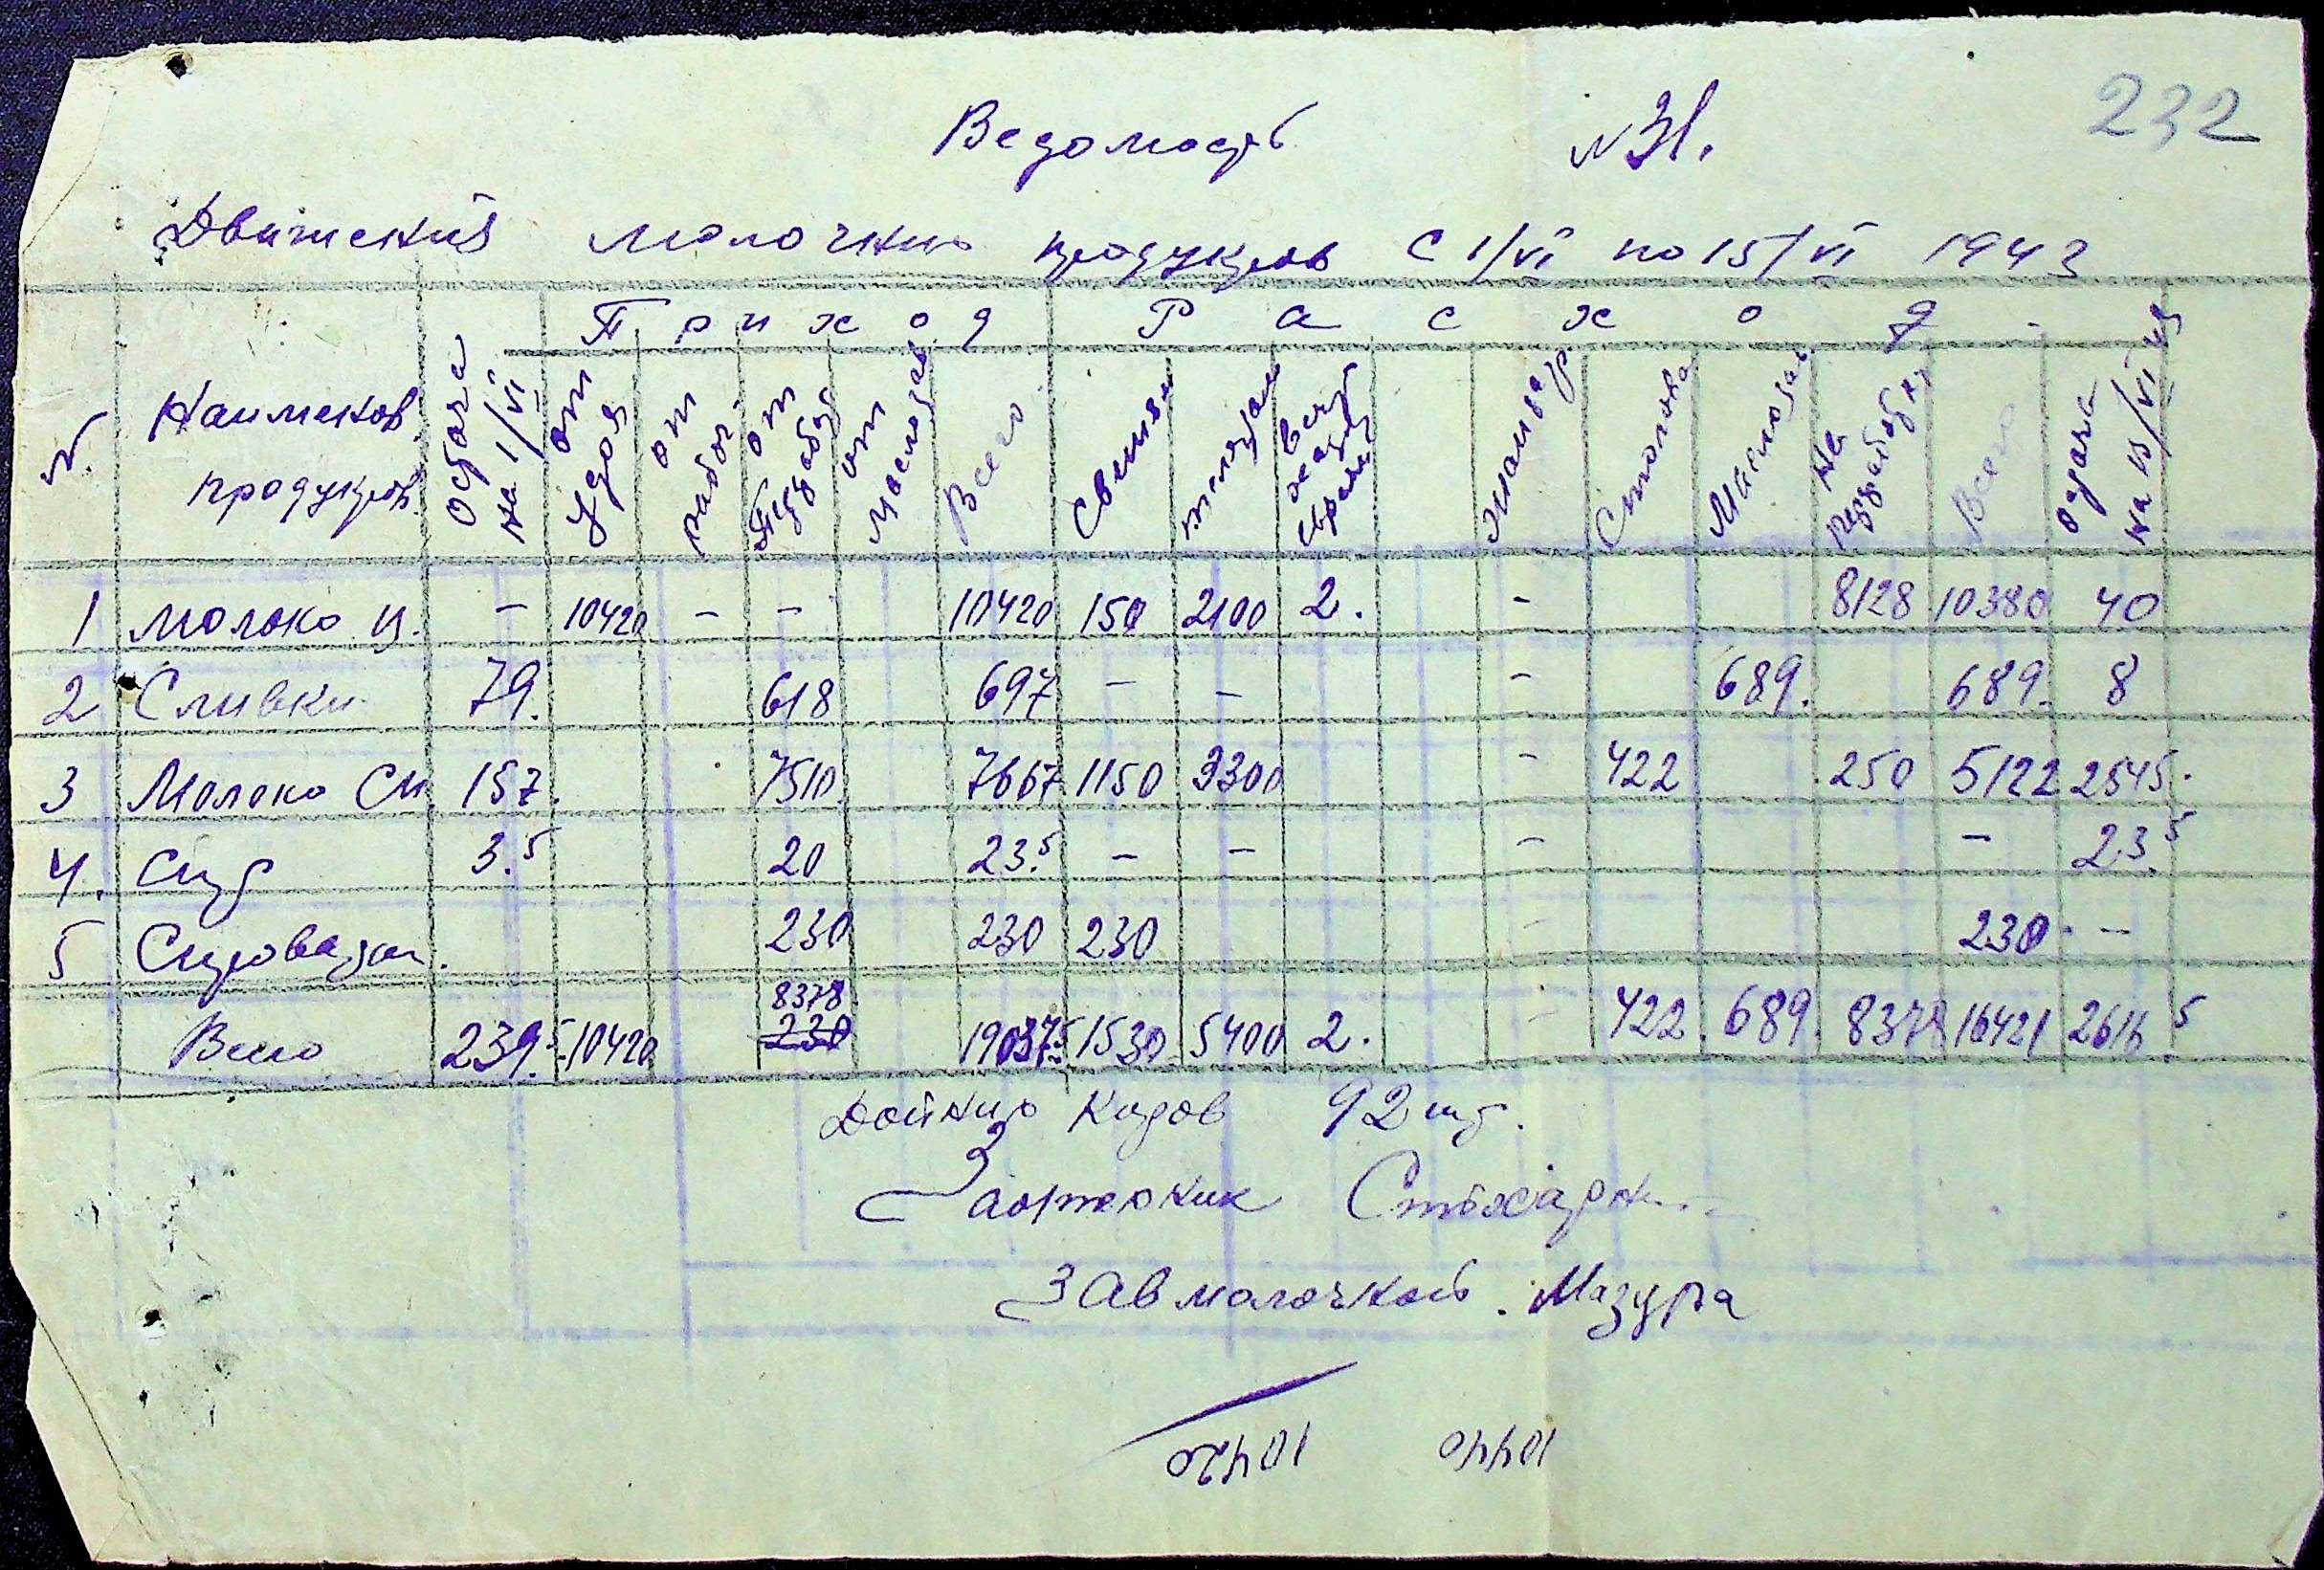 232
Ведомость №31.
Движения молочных продуктов С 1/VI по 15/VI 1943
Приход Расход
№ Наименов продуктов Остаток на 1/VI от удоя от рабоч от Перераб от маслозав Всего Свиням телятам Столовая Маслозав На переработку Всего Остаток на 15/VI
1 Молоко ц. – 10420 – – 10420 150 2100 2. – 8128 10380 40
2 Сливки 79. 618 697 – – – 689. 689. 8
3 Молоко Сн 157. 7510 7667 1150 3300 – 422 250 5122 2545.
4. Сыр 3.5 20 23.5 – – – – 23.5
5 Сыроватки. 230 230 230 – 230 –
8378
Всего 239.5 10420 230 19037.5 1530 5400 2. – 422 689. 8378 16421 2616.5
Дойных Коров 92 шт.
Зоотехник
Зав молочной. Мазура
10420 10440